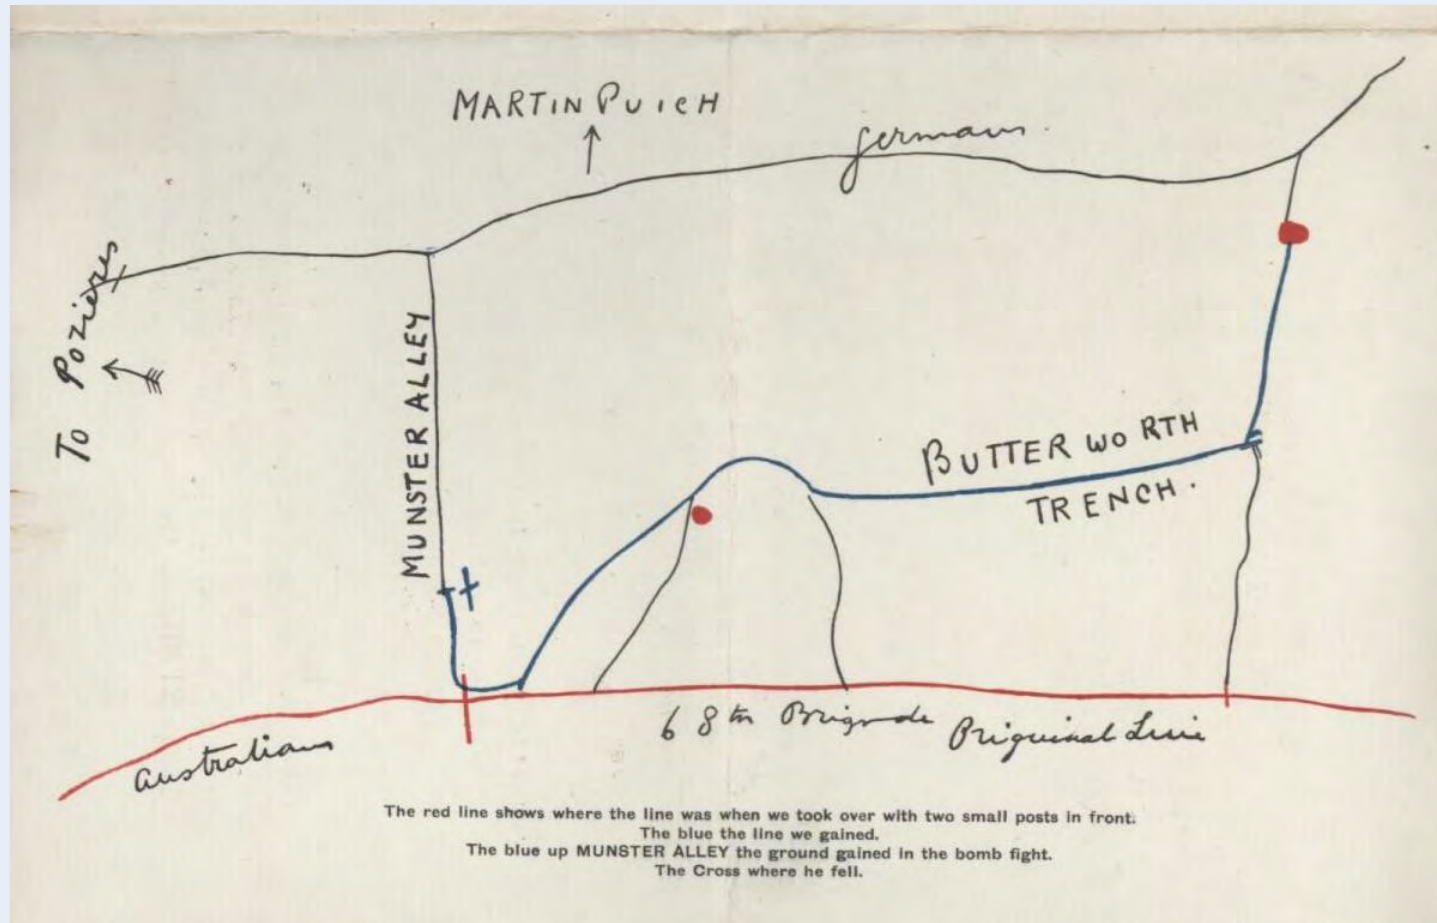 MARTIN PUICH
germans.
To Pozieres
MUNSTER ALLEY
BUTTER WORTH
TRENCH.
Australians
68th Brigade Original Line
The red line shows where the line was when we took over with two small posts in front.
The blue the line we gained.
The blue up MUNSTER ALLEY the ground gained in the bomb fight.
The Cross where he fell.